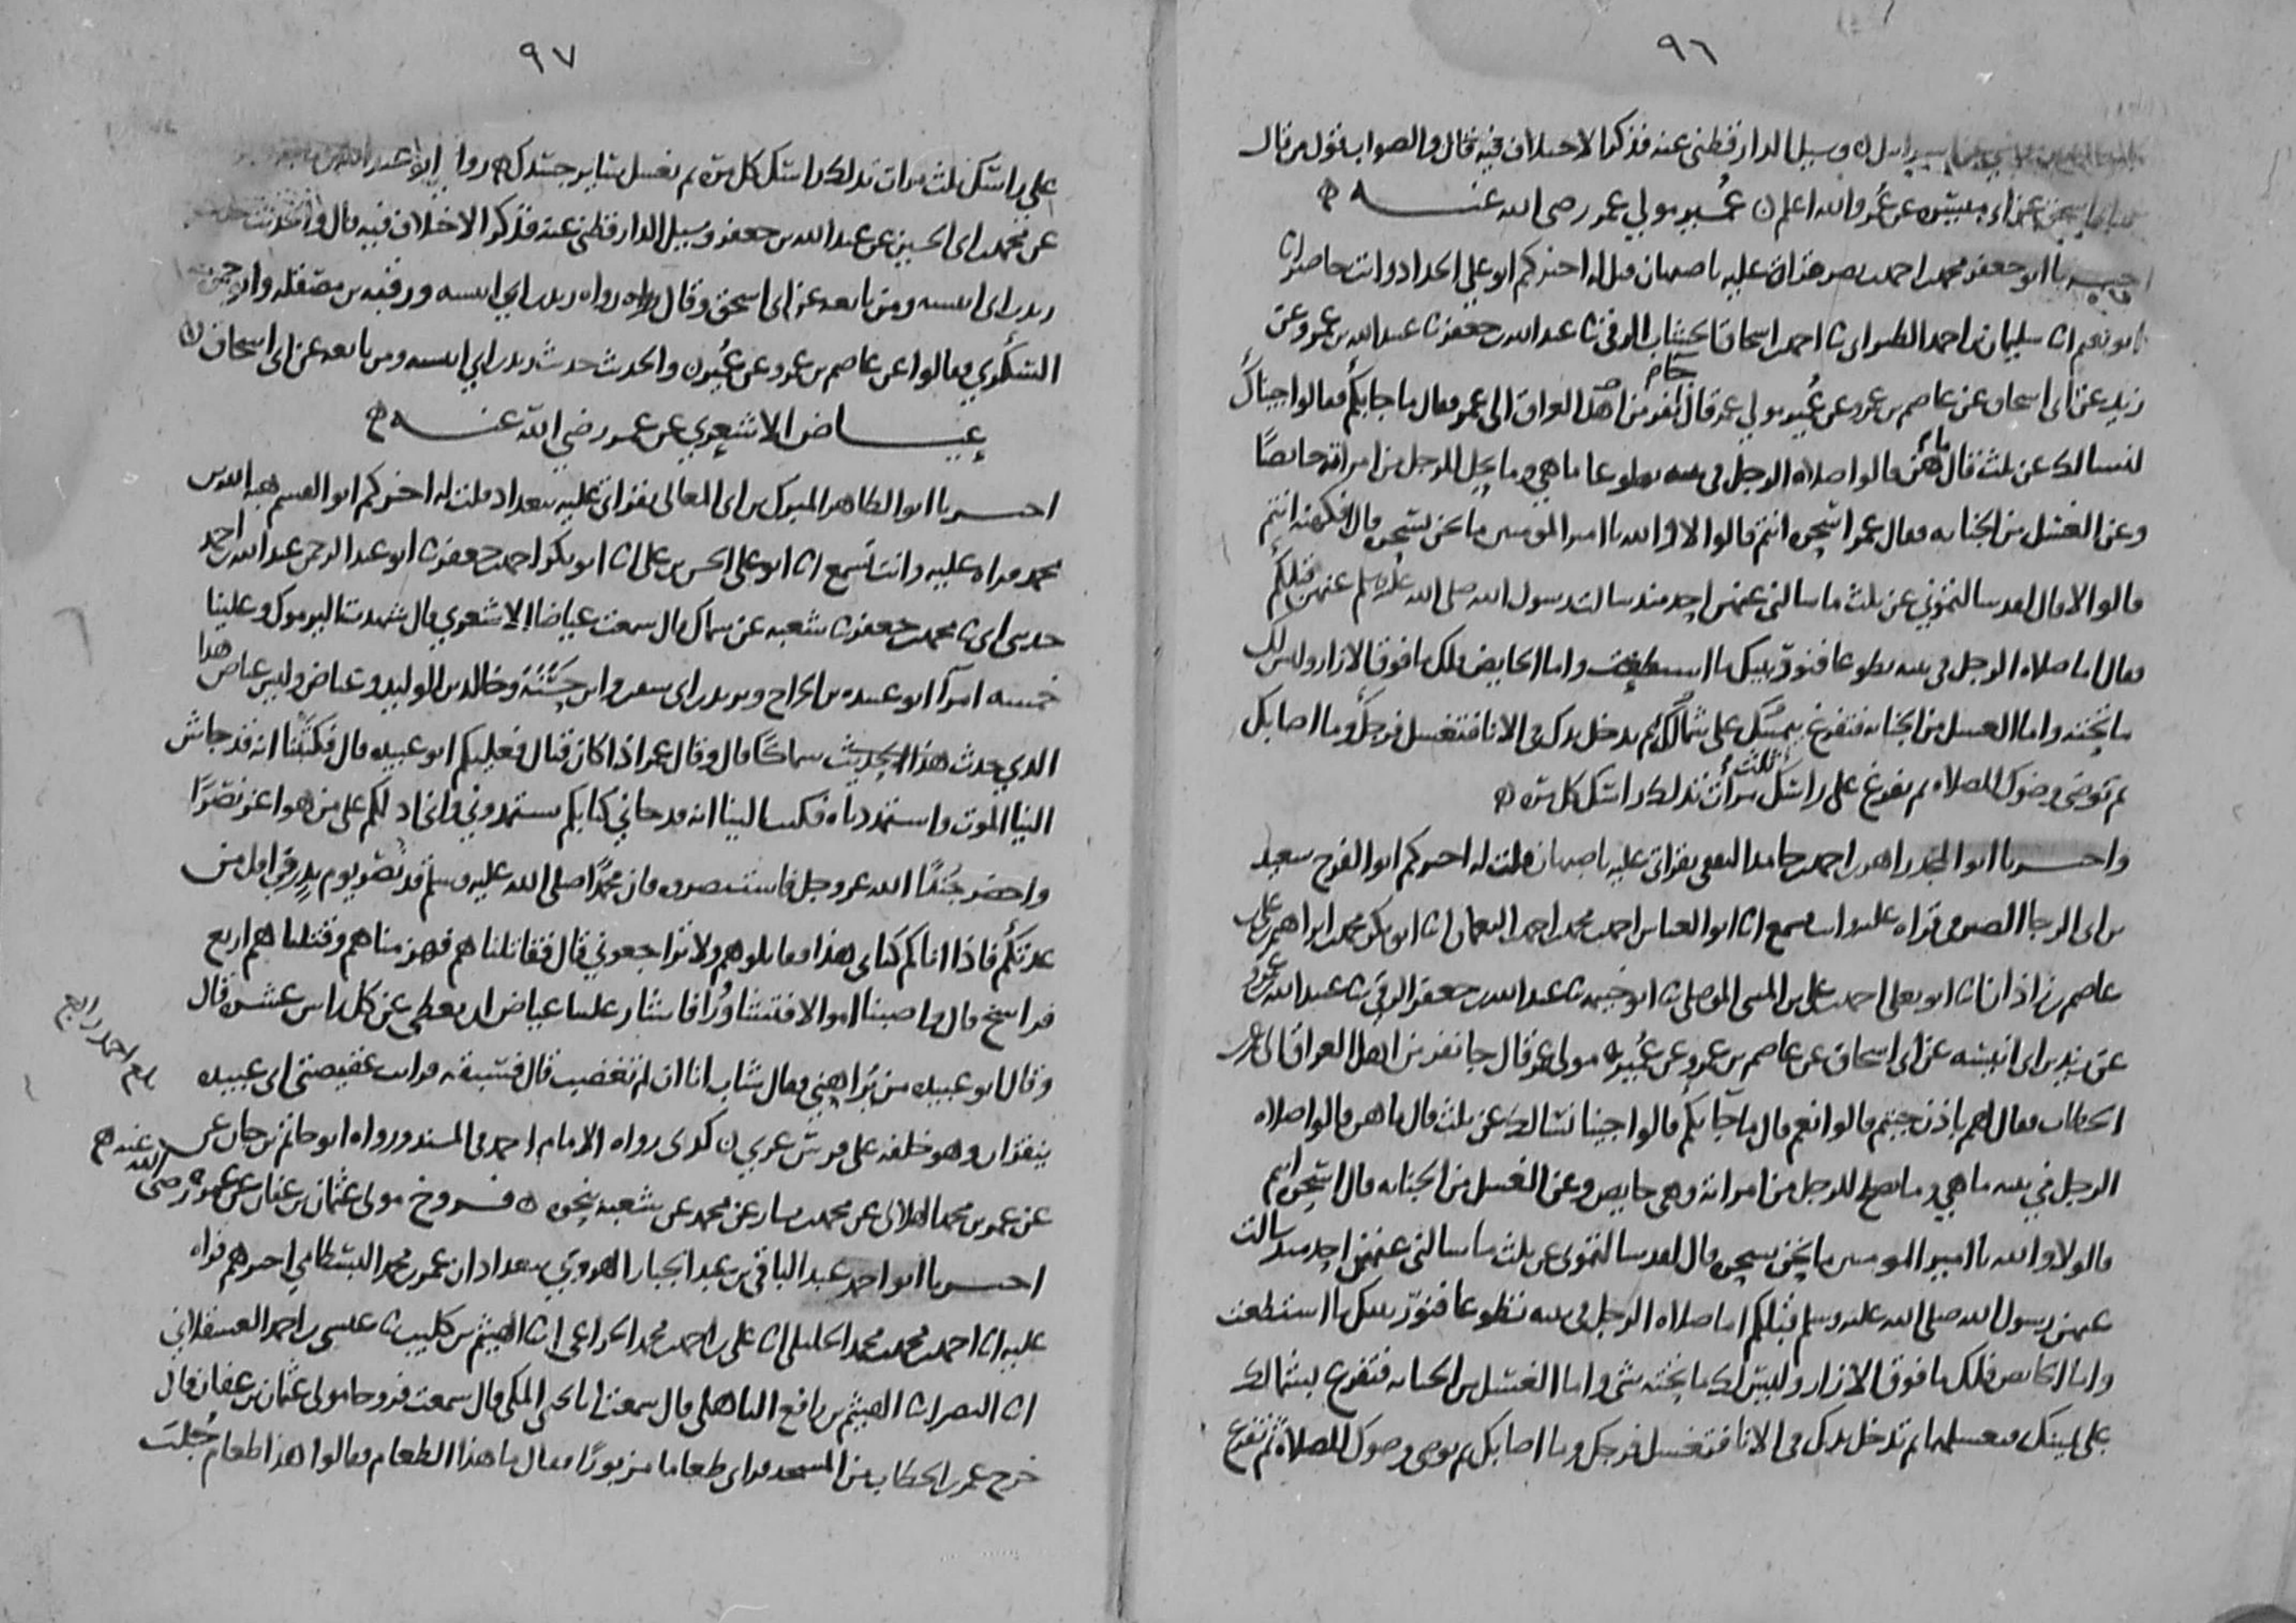 ٩٦
وسيل الدارقطني عنه فذكر الاختلاف فيه قال والصواب قول من قال
عن ابي ميسرة عن عمر والله اعلم عمير مولي عمر رضي الله عنه
ابو جعفر محمد بن احمد بن نصر بقراتي عليه باصبهان قيل له اخبركم ابو علي الحداد وانت حاضر انا
ابو نعيم انا سليمان بن احمد الطبراني نا احمد بن اسحاق الخشاب الرقي نا عبد الله بن جعفر نا عبيد الله بن عمرو عن
زيد عن ابي اسحاق عن عاصم بن عمرو عن عمير مولي عمر قال جاء نفر من اهل العراق الى عمر فقال ما جابكم فقالوا جيناك
لنسالك عن ثلث قال ما هن قالوا صلاه الرجل في بيته تطوعا ما هي وما يحل للرجل من امراته حايضا
وعن الغسل من الجنابه فقال عمر اسحره انتم قالوا لا والله يا امير المومنين ما نحن بسحره قال افكهنه انتم
قالوا لا قال لقد سالتموني عن ثلث ما سالني عنهن احد منذ سالت رسول الله صلى الله عليه وسلم عنهن قبلكم
فقال اما صلاه الرجل في بيته تطوعا فنور بيتك ما استطعت واما الحايض فلك ما فوق الازار وليس لك
ما تحته واما الغسل من الجنابه فتفرغ بيمينك على شمالك ثم تدخل يدك في الانا فتغسل فرجك وما اصابك
ثم توضى وضوك للصلاه ثم تفرغ على راسك ثلث مرات تدلك راسك كل مرة
واخبرنا ابو المجد زاهر بن احمد بن حامد الثقفي بقراتي عليه باصبهان قلت له اخبركم ابو الفرج سعيد
بن ابي الرجا الصيرفي قراه عليه وانت تسمع انا ابو العباس احمد بن محمد بن احمد النعمان انا ابو بكر محمد بن ابراهيم بن علي بن
عاصم بن زاذان انا ابو يعلى احمد بن علي بن المثنى الموصلي نا ابو خيثمه نا عبد الله بن جعفر الرقي نا عبيد الله بن عمرو
عن زيد بن ابي انيسه عن ابي اسحاق عن عاصم بن عمرو عن عمير مولى عمر قال جا نفر من اهل العراق الى عمر بن
الخطاب فقال لهم باذن جيتم قالوا نعم قال ما جابكم قالوا جينا نسالك عن ثلث قال ما هن قالوا صلاه
الرجل في بيته ما هي وما يصلح للرجل من امراته وهي حايض وعن الغسل من الجنابه قال اسحره انتم
قالوا لا والله يا امير المومنين ما نحن بسحره قال لقد سالتموني عن ثلث ما سالني عنهن احد منذ سالت
عنهن رسول الله صلى الله عليه وسلم قبلكم اما صلاه الرجل في بيته تطوعا فنور بيتك ما استطعت
واما الحايض فلك ما فوق الازار وليس لك ما تحته شي واما الغسل من الجنابه فتفرغ بشمالك
على يمينك فتغسلها ثم تدخل يدك في الانا فتغسل فرجك وما اصابك ثم توضى وضوك للصلاة ثم تفرغ
٩٧
على راسك ثلث مرات تدلك راسك كل مرة ثم تغسل ساير جسدك
عن محمد بن ابي الحسين عن عبد الله بن جعفر وسيل الدارقطني عنه فذكر الاختلاف فيه قال
زيد بن ابي انيسه ومن تابعه عن ابي اسحق وقال رواه زيد بن ابي انيسه ورقبه بن مصقله
السكري فقالوا عن عاصم بن عمرو عن عمير والحديث حديث زيد بن ابي انيسه ومن تابعه عن ابي اسحاق
عياض الاشعري عن عمر رضي الله عنه
اخبرنا ابو الطاهر المبرك بن ابي المعالي بقراتي عليه ببغداد قلت له اخبركم ابو القسم هبه الله بن
محمد قراه عليه وانت تسمع انا ابو علي الحسن بن علي انا ابو بكر احمد بن جعفر نا ابو عبد الرحمن عبد الله بن احمد
حدثني ابي نا محمد بن جعفر نا شعبه عن سماك قال سمعت عياضا الاشعري قال شهدت اليرموك وعلينا
خمسه امرآ ابو عبيده بن الجراح ويزيد بن ابي سفين وابن حسنة وخالد بن الوليد وعياض وليس عياض هذا
الذي حدث هذا الحديث سماكا قال وقال عمر اذا كان قتال فعليكم ابو عبيده قال فكتبنا انه قد جاش
الينا الموت واستمددناه فكتب الينا انه قد جاني كتابكم تستمدوني واني ادلكم على من هو اعز نصرا
واحضر جندا الله عز وجل فاستنصروه فان محمدا صلى الله عليه وسلم قد نصر يوم بدر في اقل من
عدتكم فاذا اتاكم كتابي هذا فقاتلوهم ولا تراجعوني قال فقاتلناهم فهزمناهم وقتلناهم اربع
فراسخ قال واصبنا اموالا فتشاورا فاشار علينا عياض ان يعطى عن كل راس عشره قال
وقال ابو عبيده من يراهني فقال شاب انا ان لم تغضب قال فسبقه فرايت عقيصتي ابي عبيده
ينقزان وهو خلفه على فرس عربي كذى رواه الامام احمد في المسند ورواه ابو حاتم بن حبان عن
عن عمر بن محمد الهمداني عن محمد بن بشار عن محمد عن شعبه بنحوه فروخ مولى عثمان بن عفان عن عمر رضي الله عنهم
اخبرنا ابو احمد عبد الباقي بن عبد الجبار الهروي ببغداد ان عمر بن محمد البسطامي اخبرهم قراه
عليه انا احمد بن محمد بن محمد الخليلي انا علي بن احمد بن محمد الخزاعي انا الهيثم بن كليب نا عيسى بن احمد العسقلاني
انا النضر انا الهيثم بن رافع الباهلي قال سمعت ابا يحيى المكي قال سمعت فروخا مولى عثمان بن عفان قال
خرج عمر بن الخطاب من المسجد فراى طعاما منثورا فقال ما هذا الطعام فقالوا هذا طعام جلب